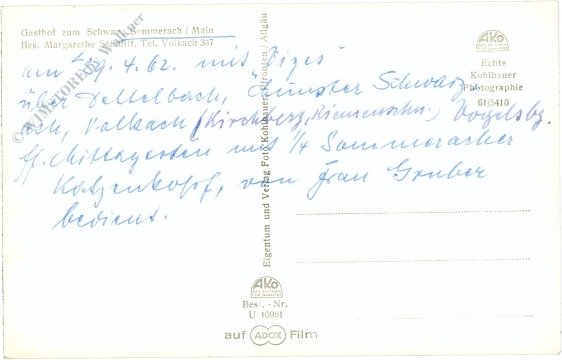 Gasthof zum Schwan, Sommerach / Main
Bes. Margarethe Schmitt, Tel. Volkach 347
am 29. 4. 62. mit "Vizes"
über Dettelbach, Münster Schwarz-
ach, Volkach (Kirchberg, Riemenschn.) Vogelsbg.
ff. Mittagessen mit 1/4 Sommeracher
Katzenkopf, von Frau Gruber
bedient.
© WIMSTORE by Wallner
Eigentum und Verlag Foto Kohlbauer, Pfronten / Allgäu
AKO
Echte
Kohlbauer
Photographie
61/5410
AKO
Best. - Nr.
U 10961
auf ADOX Film